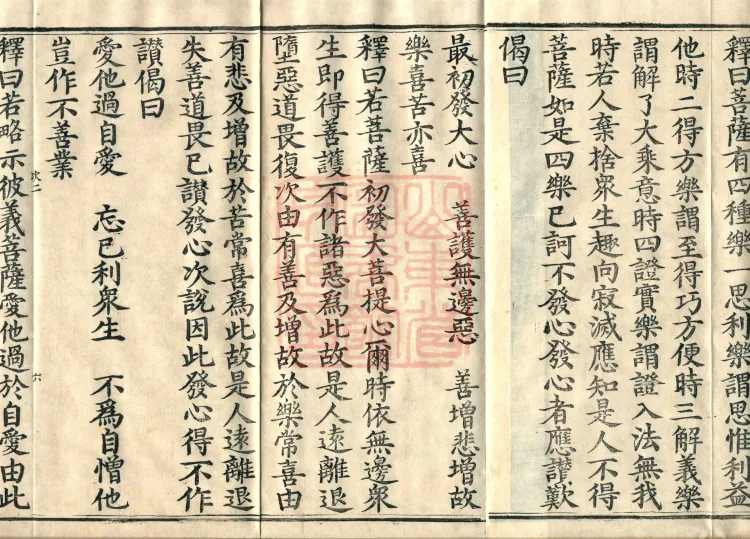 釋曰菩薩有四種樂一思利樂謂思惟利益
他時二得方樂謂至得巧方便時三解義樂
謂解了大乘意時四證實樂謂證入法無我
時若人棄捨衆生趣向寂滅應知是人不得
菩薩如是四樂已訶不發心發心者應讃歎
偈曰
最初發大心　善護無邊惡　善增悲增故
樂喜苦亦喜
釋曰若菩薩初發大菩提心爾時依無邊衆
生即得善護不作諸惡爲此故是人遠離退
墮惡道畏復次由有善及增故於樂常喜由
有悲及增故於苦常喜爲此故是人遠離退
失善道畏已讃發心次說因此發心得不作
讃偈曰
愛他過自愛　忘已利衆生　不為自憎他
豈作不善業
釋曰若略示彼義菩薩愛他過於自愛由此
六